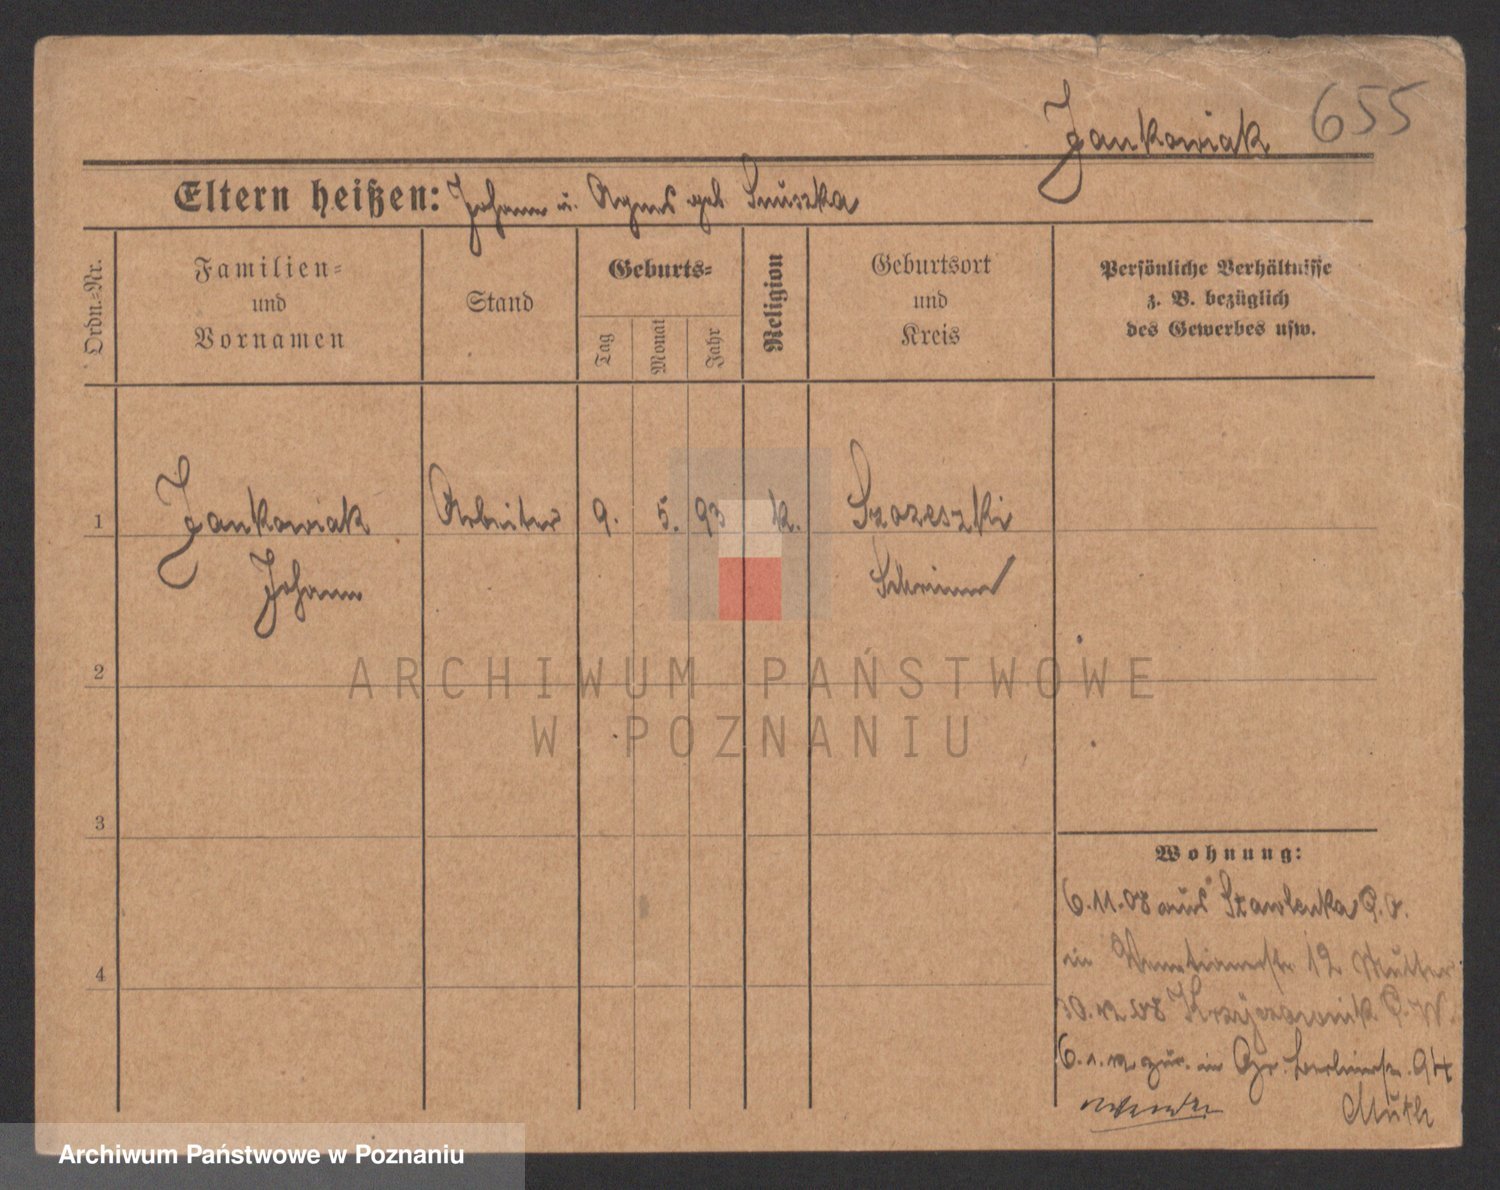 Jankowiak 655
Eltern heißen: Johann u. Agnes geb Snuszka
Ordn.=Nr.
Familien=
und
Vornamen
Stand
Geburts=
Tag
Monat
Jahr
Religion
Geburtsort
und
Kreis
Persönliche Verhältnisse
z. B. bezüglich
des Gewerbes usw.
1 Jankowiak Arbeiter 9. 5. 93 k.
Johann Schrimm
2
3
4
Wohnung:
6.11.08 aus
in 12 Mutter
6.1. zur. in 94
ARCHIWUM PAŃSTWOWE
W POZNANIU
Archiwum Państwowe w Poznaniu